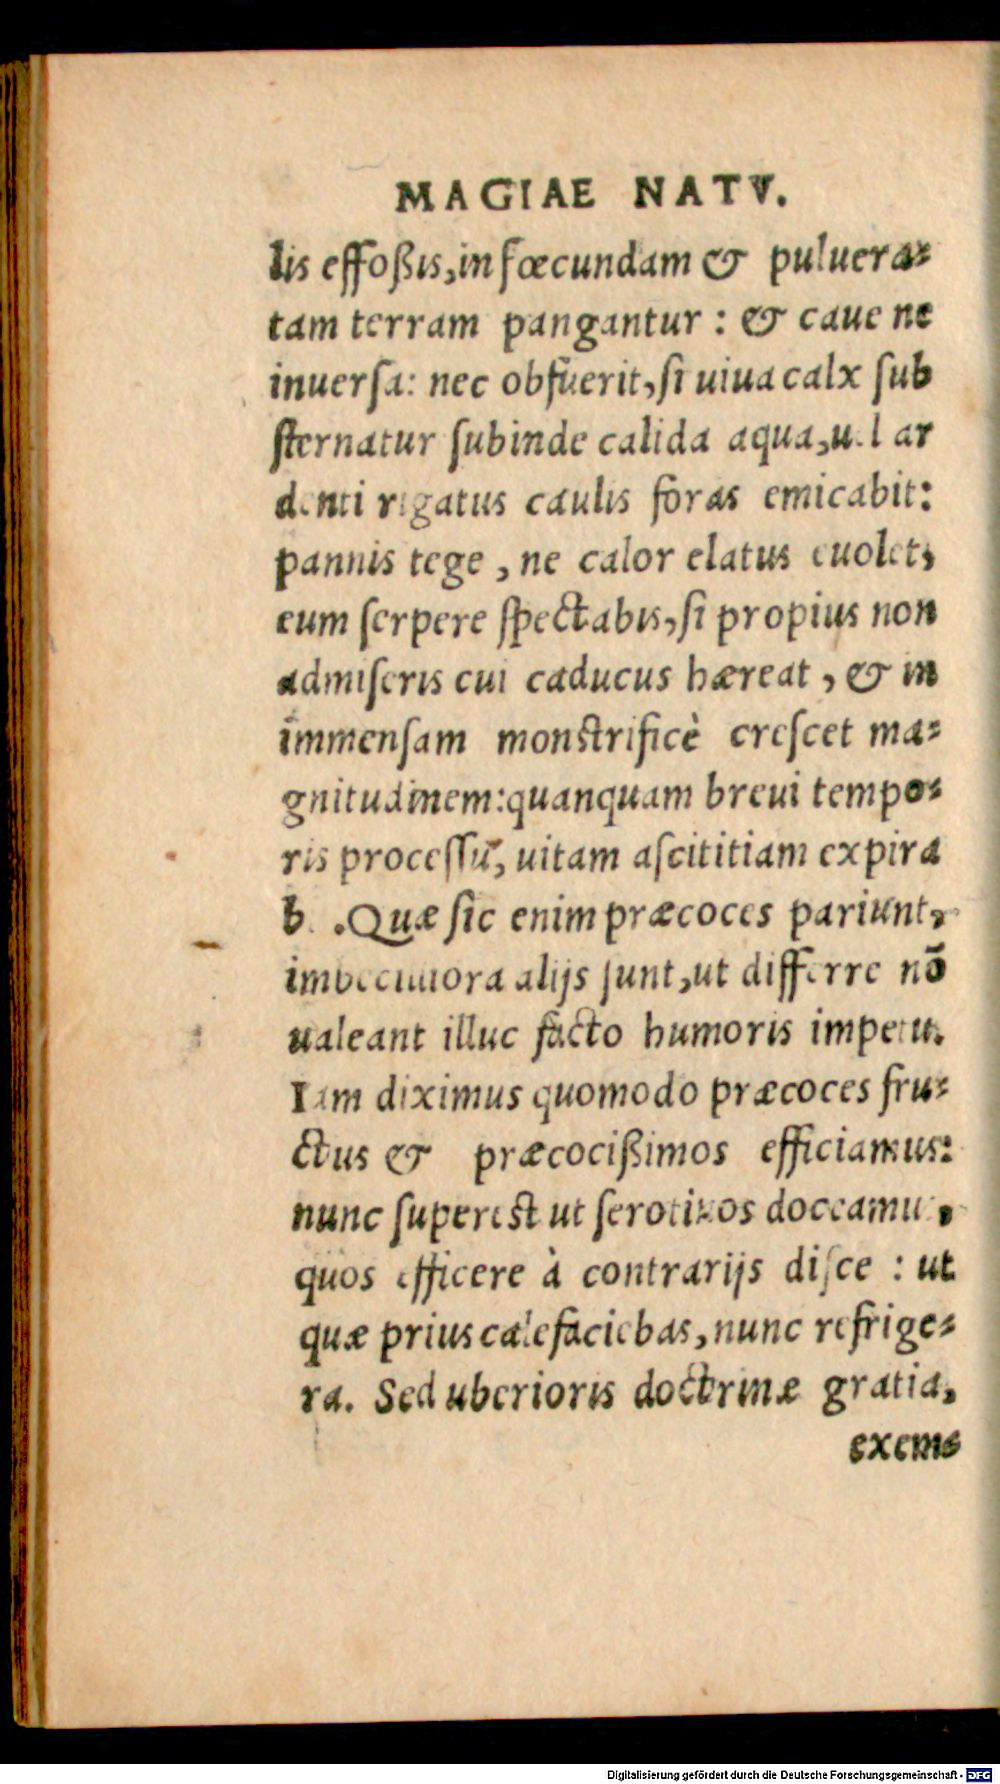 MAGIAE NATV.
lis effoßis,in fœcundam & puluera-
tam terram pangantur : & caue ne
inuersa: nec obfuerit,si uiua calx sub
sternatur subinde calida aqua,uel ar
denti rigatus caulis foras emicabit:
pannis tege , ne calor elatus euolet,
eum serpere spectabis,si propius non
admiseris cui caducus hæreat , & in
immensam monstrificè crescet ma-
gnitudinem:quanquam breui tempo-
ris processu, uitam ascititiam expira
b .Quæ sic enim præcoces pariunt,
imbecilliora alijs sunt,ut differre nō
ualeant illuc facto humoris impetu.
Iam diximus quomodo præcoces fru-
ctus & præcocißimos efficiamus:
nunc superest ut serotinos doceamus,
quos efficere à contrarijs disce : ut
quæ prius calefaciebas,nunc refrige-
ra. Sed uberioris doctrinæ gratia,
exem-
Digitalisierung gefördert durch die Deutsche Forschungsgemeinschaft - DFG